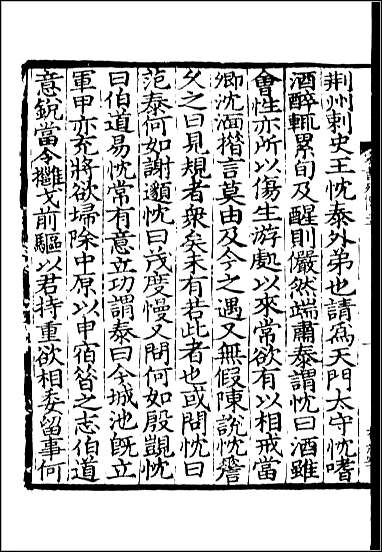 荆州刺史王忱泰外弟也請爲天門太守忱嗜
酒醉輒累旬及醒則儼然端肅泰謂忱曰酒雖
會性亦所以傷生游處以來常欲有以相戒當
卿沈湎揩言莫由及今之遇又無假陳說忱嗟
乆之曰見規者衆矣未有若此者也或問忱曰
范泰何如謝邈忱曰茂度慢又問何如殷覬忱
曰伯道易忱常有意立功謂泰曰今城池旣立
軍甲亦充將欲埽除中原以申宿昝之志伯道
意銳當令擁戈前驅以君持重欲相委留事何